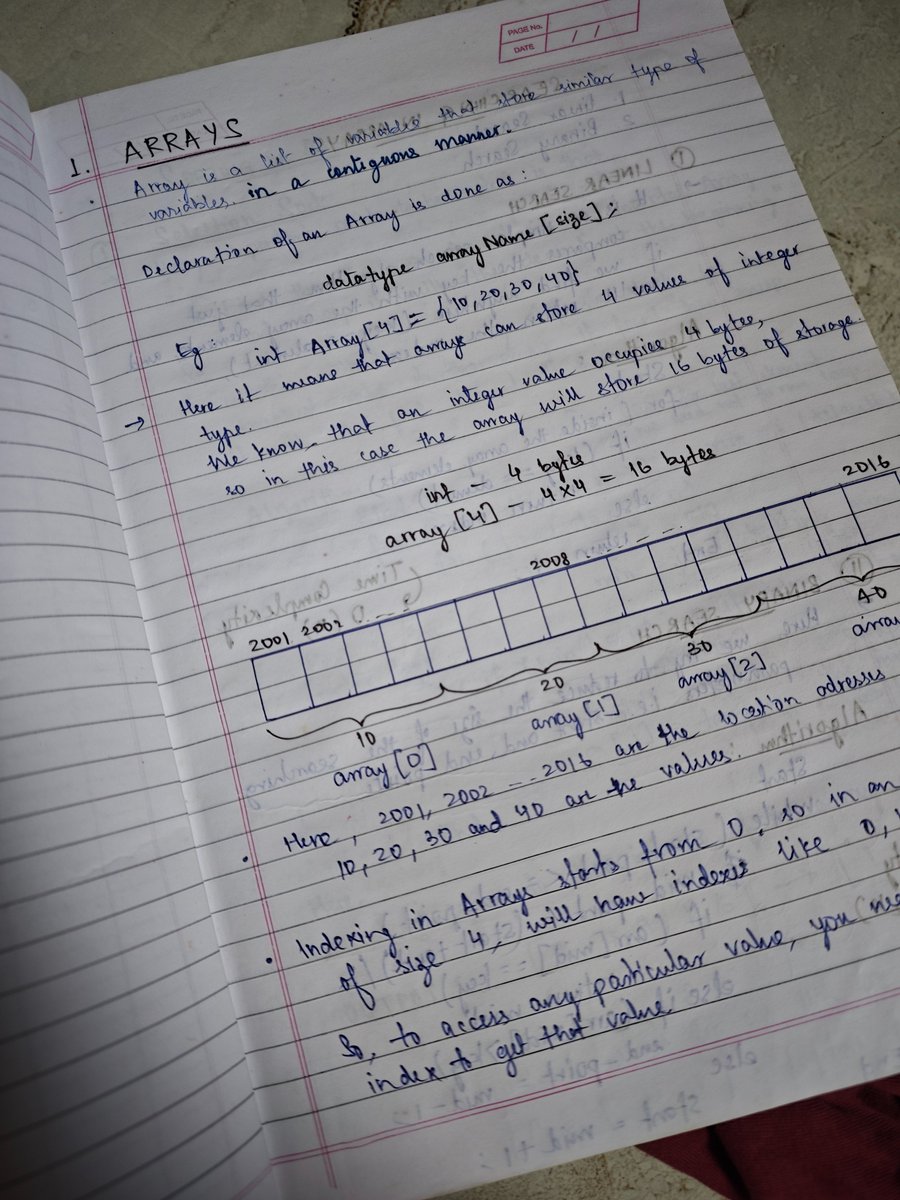 PAGE No.
DATE / /
1. ARRAYS
. Array is a list of variables that store similar type of
variables in a contiguous manner.
Declaration of an Array is done as:
datatype arrayName [size];
Eg: int Array[4] = {10, 20, 30, 40}
→ Here it means that arrays can store 4 values of integer
type.
We know that an integer value occupies 4 bytes,
so in this case the array will store 16 bytes of storage.
int - 4 bytes
array [4] - 4×4 = 16 bytes
2001 2002 2008 - - - .. 2016
10 20 30 40
array[0] array[1] array[2] array
. Here, 2001, 2002 -- 2016 are the location adresses
10, 20, 30 and 40 are the values.
. Indexing in Arrays starts from 0, so in an
of size 4, will have indexes like 0,
So, to access any particular value, you
index to get that value